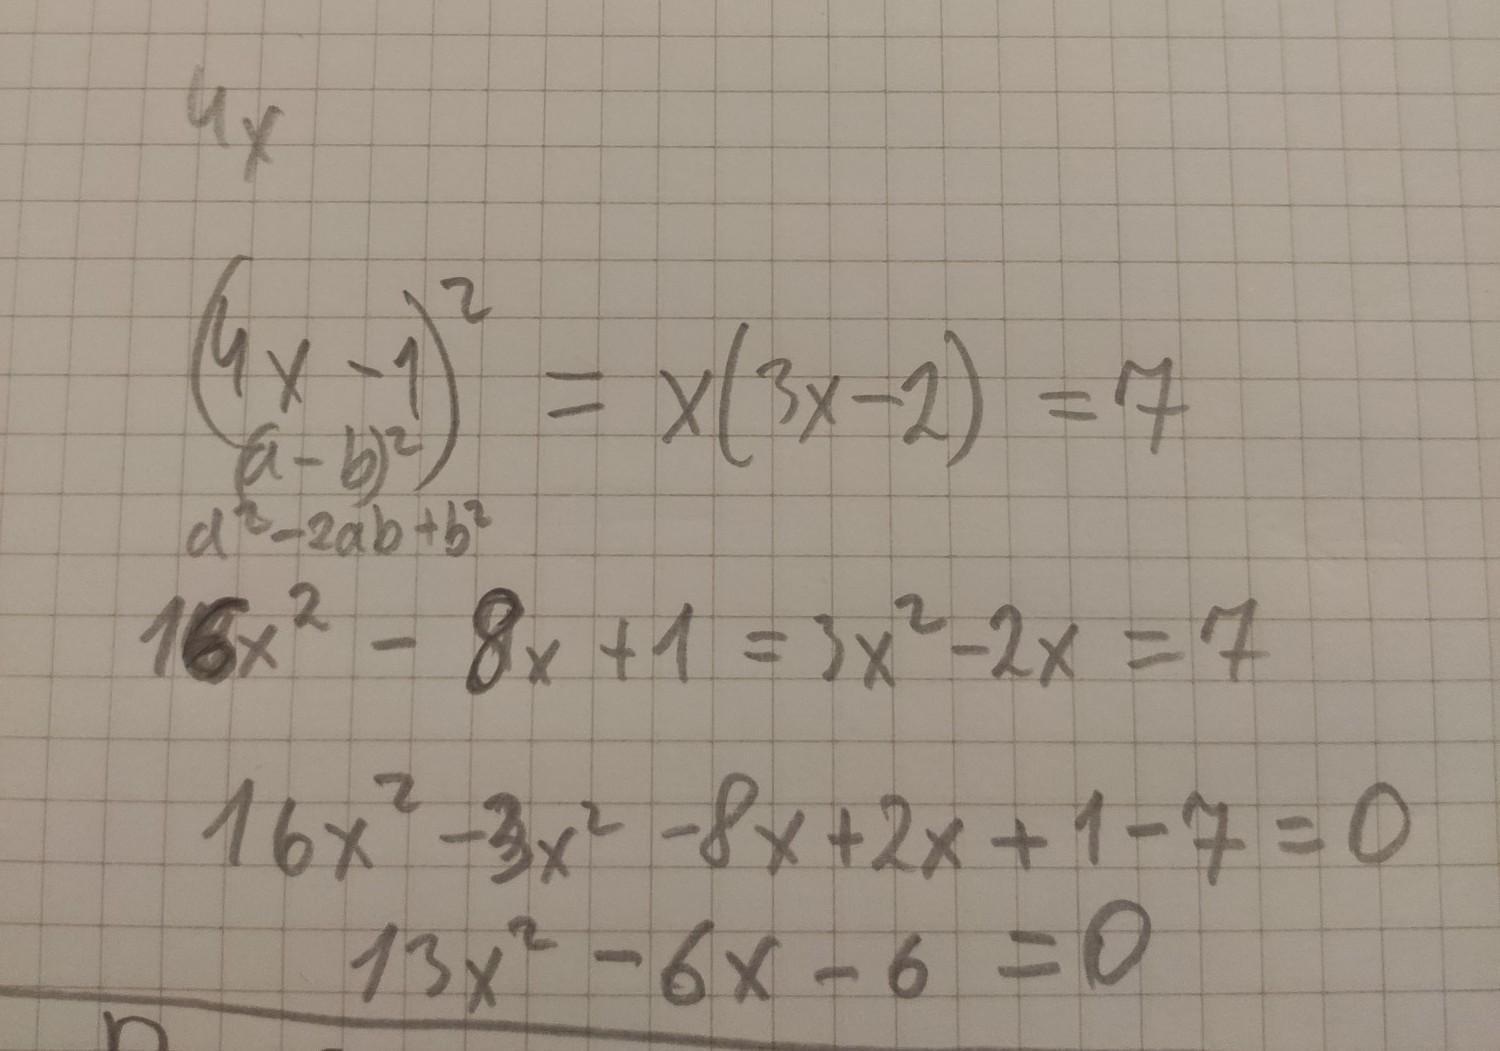 4x
(4x - 1)² = x(3x - 2) = 7
(a - b)²
a² - 2ab + b²
16x² - 8x + 1 = 3x² - 2x = 7
16x² - 3x² - 8x + 2x + 1 - 7 = 0
13x² - 6x - 6 = 0